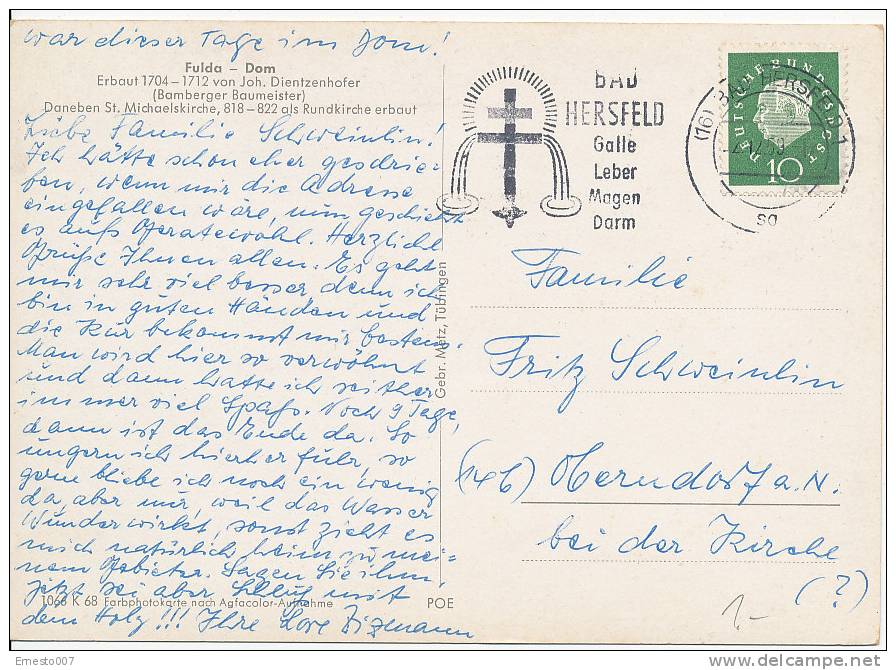 war dieser Tage im Dom!
Fulda – Dom
Erbaut 1704–1712 von Joh. Dientzenhofer
(Bamberger Baumeister)
Daneben St. Michaelskirche, 818–822 als Rundkirche erbaut
Liebe Familie Schweinlin!
Ich hätte schon eher geschrie-
ben, wenn mir die Adresse
eingefallen wäre, nun geschieht
es aufs Geratewohl. Herzliche
Grüße Ihnen allen. Es geht
mir sehr viel besser denn ich
bin in guten Händen und
die Kur bekommt mir bestens.
Man wird hier so verwöhnt
und dann hatte ich seither
immer viel Spaß. Noch 9 Tage,
dann ist das Ende da. So
ungern ich hierher fuhr, so
gern bliebe ich noch ein wenig
da, aber nur, weil das Wasser
Wunder wirkt, sonst zieht es
mich natürlich heim zu mei-
nem Gebieter. Sagen Sie ihm,
jetzt sei aber Schluß mit
dem Holz!!! Ihre Lore
1068 K 68 Farbphotokarte nach Agfacolor-Aufnahme POE
Gebr. Metz, Tübingen
BAD
HERSFELD
Galle
Leber
Magen
Darm
(16) BAD HERSFELD 1
sa
DEUTSCHE BUNDESPOST
10
Familie
Fritz Schweinlin
(14b) Oberndorf a.N.
bei der Kirche
(?)
1.-
Ernesto007
www.delcampe.net